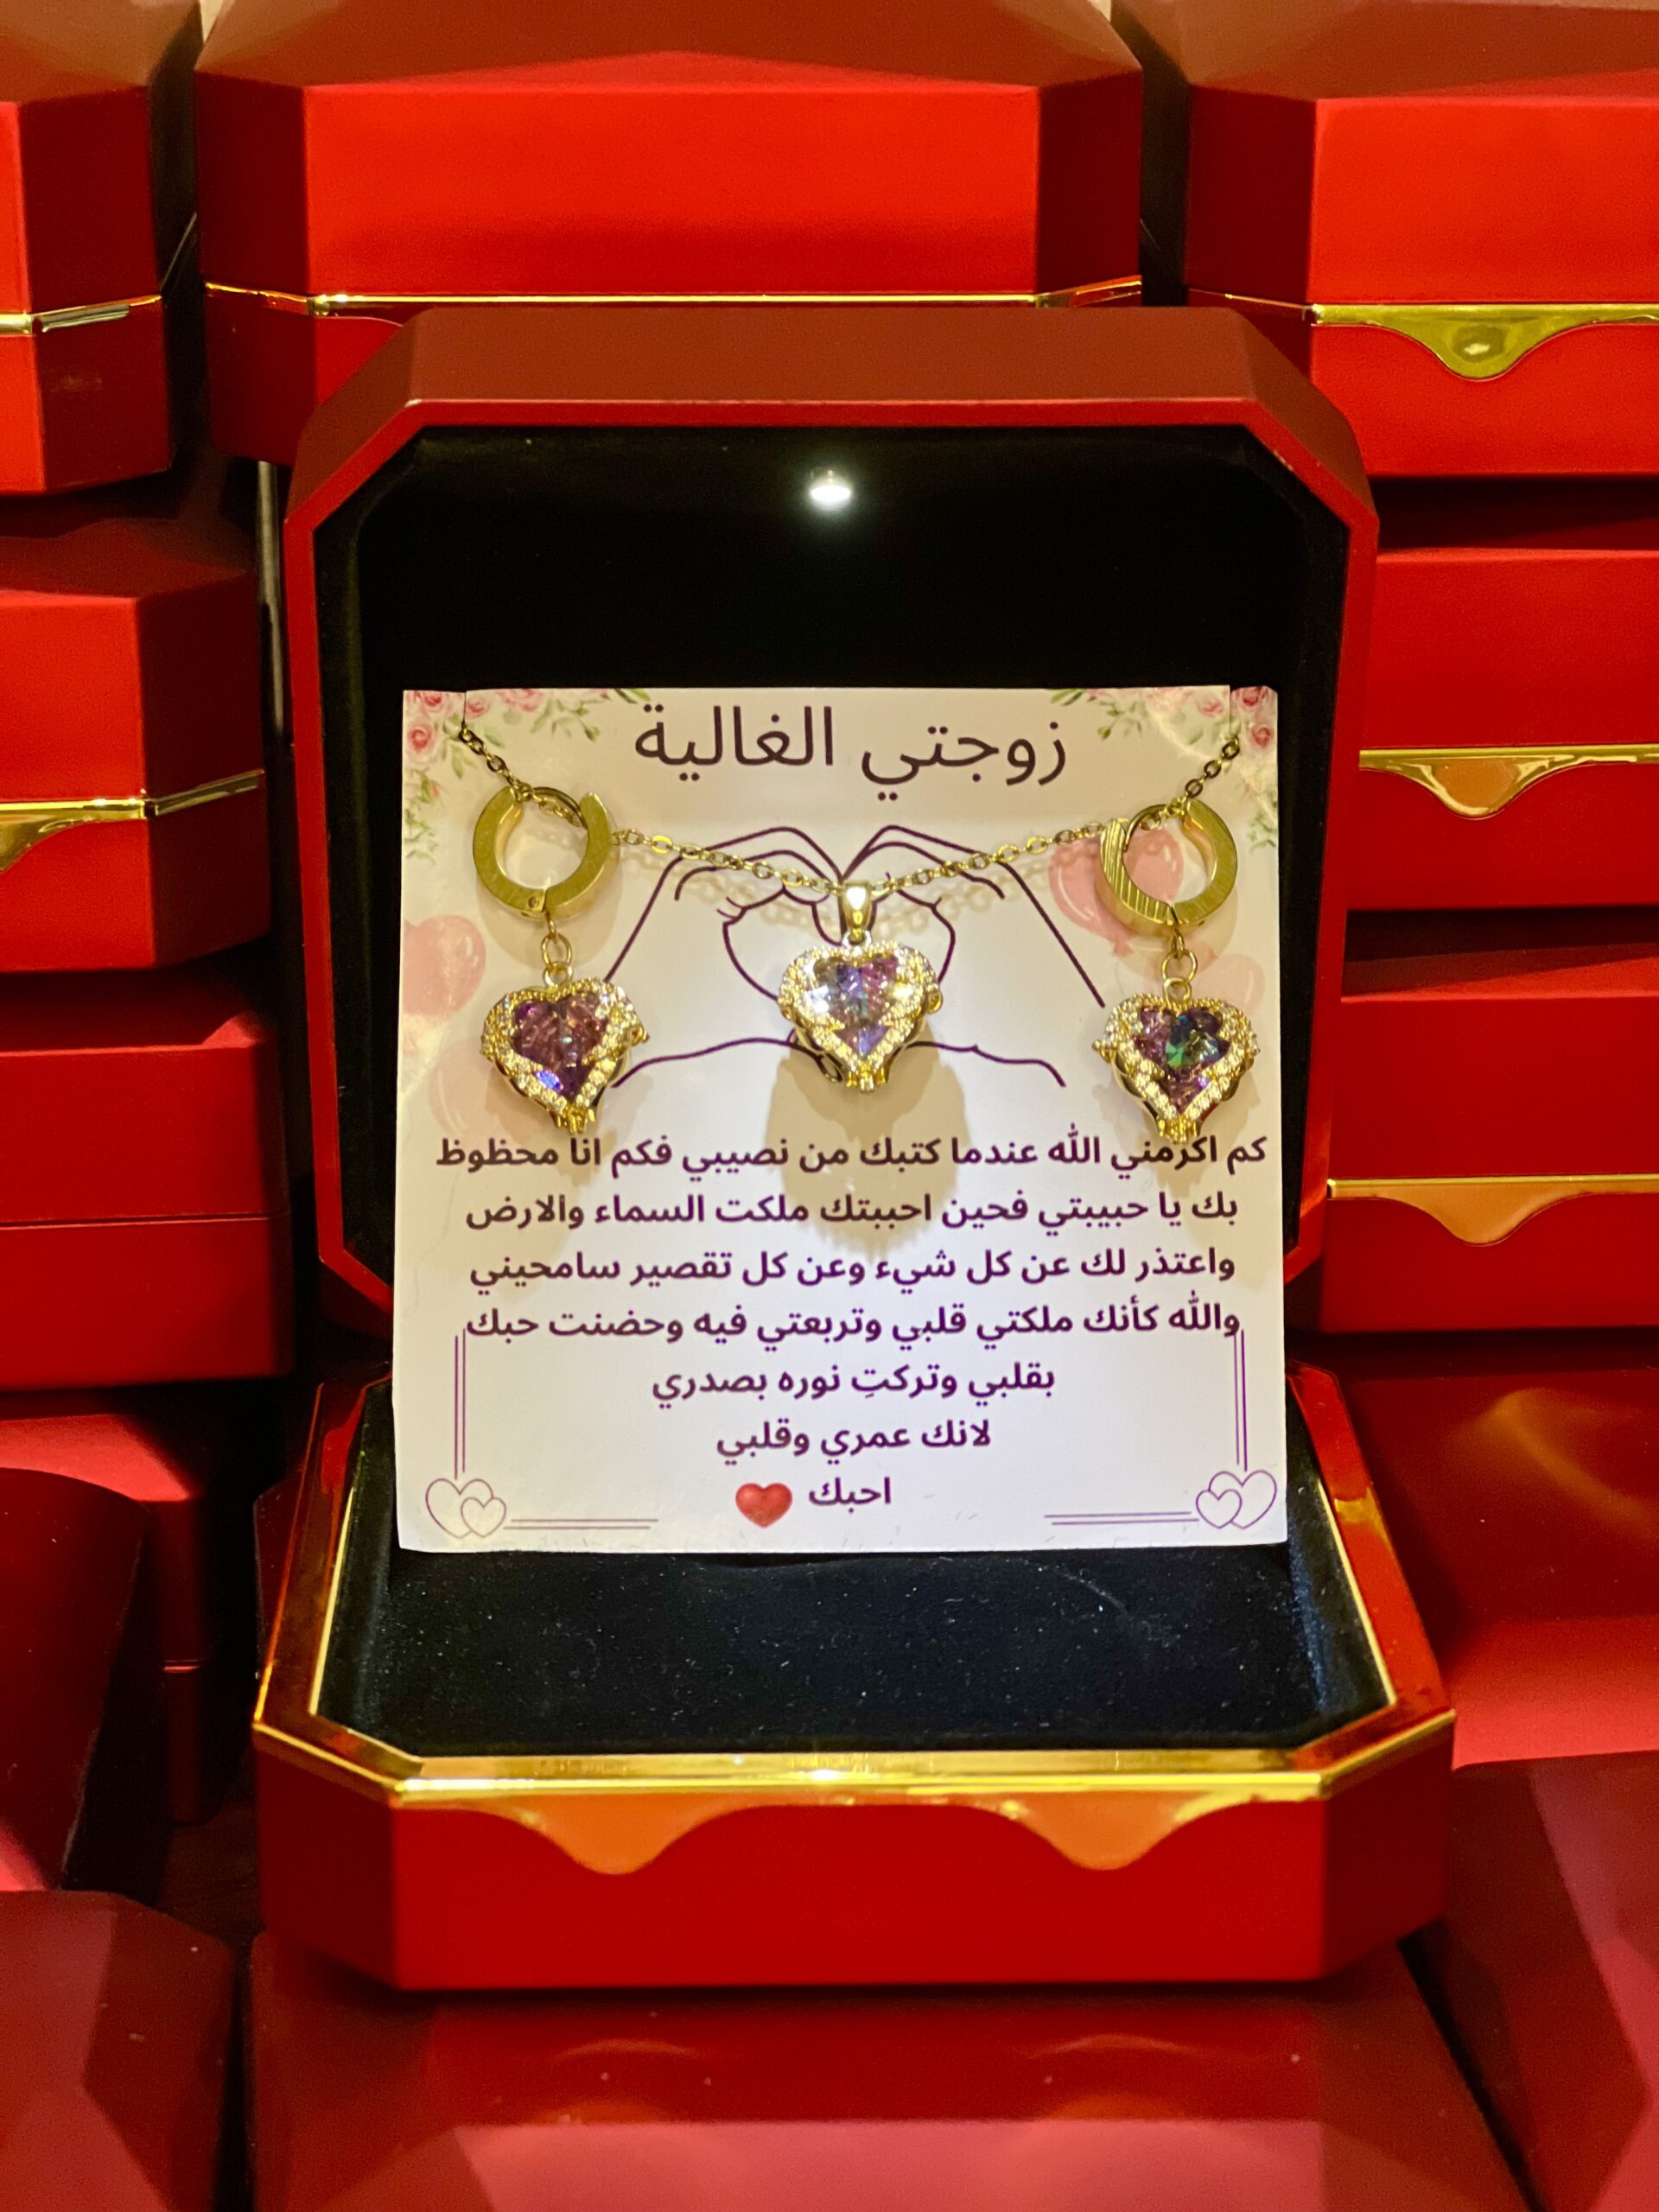 زوجتي الغالية
كم اكرمني الله عندما كتبك من نصيبي فكم انا محظوظ
بك يا حبيبتي فحين احببتك ملكت السماء والارض
واعتذر لك عن كل شيء وعن كل تقصير سامحيني
والله كأنك ملكتي قلبي وتربعتي فيه وحضنت حبك
بقلبي وتركتِ نوره بصدري
لانك عمري وقلبي
احبك